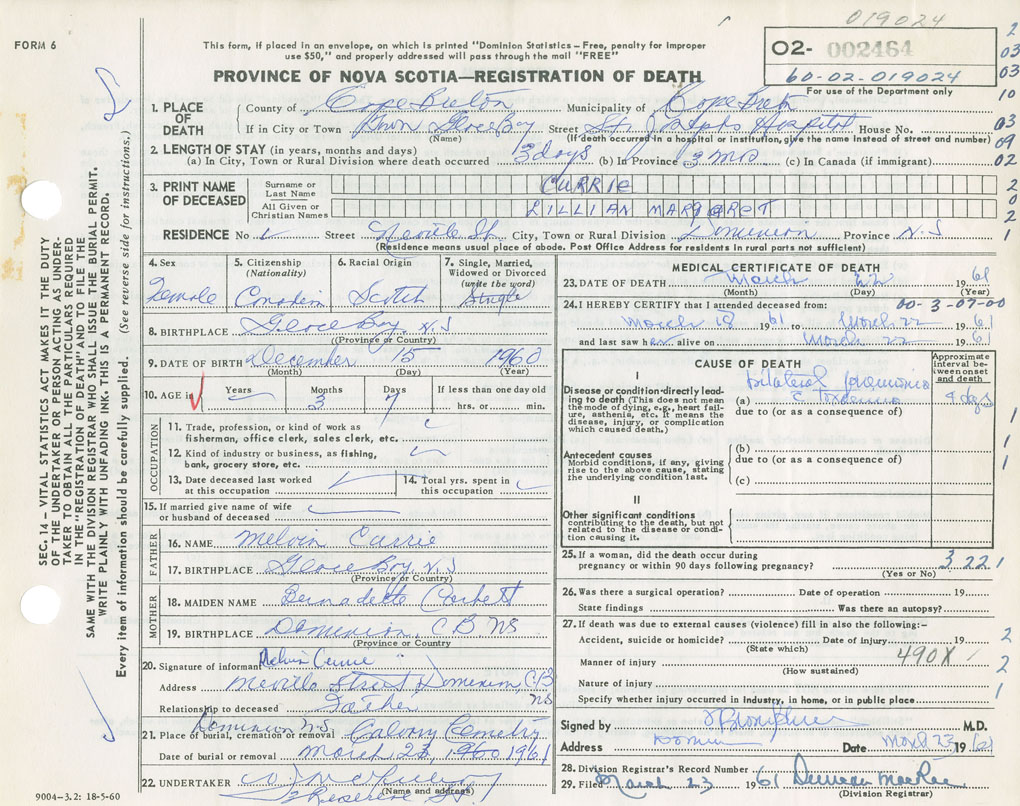 019024
FORM 6
This form, if placed in an envelope, on which is printed "Dominion Statistics – Free, penalty for improper
use $50," and properly addressed will pass through the mail "FREE"
PROVINCE OF NOVA SCOTIA—REGISTRATION OF DEATH
02- 002464
60-02-019024
For use of the Department only
1. PLACE OF DEATH
County of Cape Breton Municipality of Cape Breton
If in City or Town Town Glace Bay Street St. Josephs Hospital House No.
(Name) (If death occurred in a hospital or institution, give the name instead of street and number)
2. LENGTH OF STAY (in years, months and days)
(a) In City, Town or Rural Division where death occurred 3 days (b) In Province 3 mo (c) In Canada (if immigrant)
3. PRINT NAME OF DECEASED
Surname or Last Name CURRIE
All Given or Christian Names LILLIAN MARGARET
RESIDENCE No. Street Neville St. City, Town or Rural Division Dominion Province N.S
(Residence means usual place of abode. Post Office Address for residents in rural parts not sufficient)
4. Sex Female
5. Citizenship (Nationality) Canadian
6. Racial Origin Scotch
7. Single, Married, Widowed or Divorced (write the word) Single
8. BIRTHPLACE Glace Bay, N.S
(Province or Country)
9. DATE OF BIRTH December 15 1960
(Month) (Day) (Year)
10. AGE in Years Months 3 Days 7 If less than one day old
hrs. or min.
OCCUPATION
11. Trade, profession, or kind of work as
fisherman, office clerk, sales clerk, etc.
12. Kind of industry or business, as fishing,
bank, grocery store, etc.
13. Date deceased last worked
at this occupation
14. Total yrs. spent in
this occupation
15. If married give name of wife
or husband of deceased
FATHER
16. NAME Melvin Currie
17. BIRTHPLACE Glace Bay, N.S
(Province or Country)
MOTHER
18. MAIDEN NAME Bernadette Corbett
19. BIRTHPLACE Dominion, C.B. NS
(Province or Country)
20. Signature of informant Melvin Currie
Address Neville Street, Dominion, C.B NS
Relationship to deceased Father
Dominion N.S
21. Place of burial, cremation or removal Calvary Cemetery
Date of burial or removal March 23, 1960 1961
22. UNDERTAKER
(Name and address)
9004-3.2: 18-5-60
MEDICAL CERTIFICATE OF DEATH
23. DATE OF DEATH March 22 1961
(Month) (Day) (Year)
24. I HEREBY CERTIFY that I attended deceased from: 00-3-07-00
March 18 1961 to March 22 1961
and last saw her alive on March 22 1961
CAUSE OF DEATH
Approximate interval between onset and death
I
Disease or condition directly leading to death (This does not mean the mode of dying, e.g., heart failure, asthenia, etc. It means the disease, injury, or complication which caused death.)
(a) bilateral pneumonia
c Toxaemia 4 dys
due to (or as a consequence of)
Antecedent causes
Morbid conditions, if any, giving rise to the above cause, stating the underlying condition last.
(b)
due to (or as a consequence of)
(c)
II
Other significant conditions
contributing to the death, but not related to the disease or condition causing it.
25. If a woman, did the death occur during
pregnancy or within 90 days following pregnancy? 3 22 1
(Yes or No)
26. Was there a surgical operation? Date of operation 19
State findings Was there an autopsy?
27. If death was due to external causes (violence) fill in also the following:—
Accident, suicide or homicide? Date of injury 19
(State which)
490X
Manner of injury
(How sustained)
Nature of injury
Specify whether injury occurred in industry, in home, or in public place
Signed by M.D.
Address Date March 23 1961
28. Division Registrar's Record Number
29. Filed March 23 1961 Duncan MacRae
(Division Registrar)
SEC. 14 – VITAL STATISTICS ACT MAKES IT THE DUTY
OF THE UNDERTAKER OR PERSON ACTING AS UNDER-
TAKER TO OBTAIN ALL THE PARTICULARS REQUIRED
IN THE "REGISTRATION OF DEATH" AND TO FILE THE
SAME WITH THE DIVISION REGISTRAR WHO SHALL ISSUE THE BURIAL PERMIT.
WRITE PLAINLY WITH UNFADING INK. THIS IS A PERMANENT RECORD.
Every item of information should be carefully supplied. (See reverse side for instructions.)
2
03
03
10
03
09
02
2
0
2
1
1
1
1
2
2
1